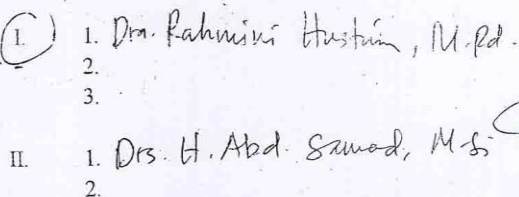 I. 1. Dra. Rahmini Hustim, M.Pd.
2.
3.
II. 1. Drs. H. Abd. Samad, M.Si
2.